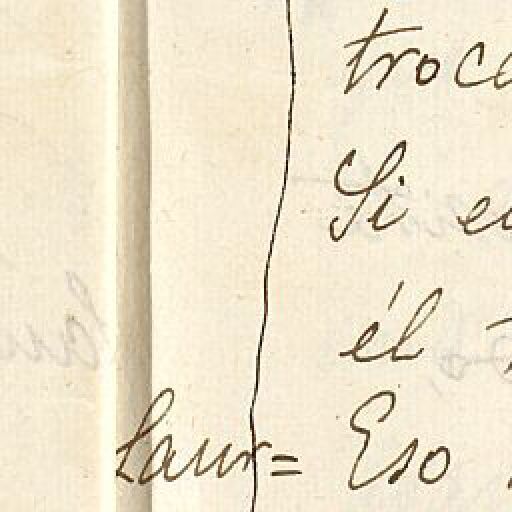 troca
Si
él
Laur= Eso